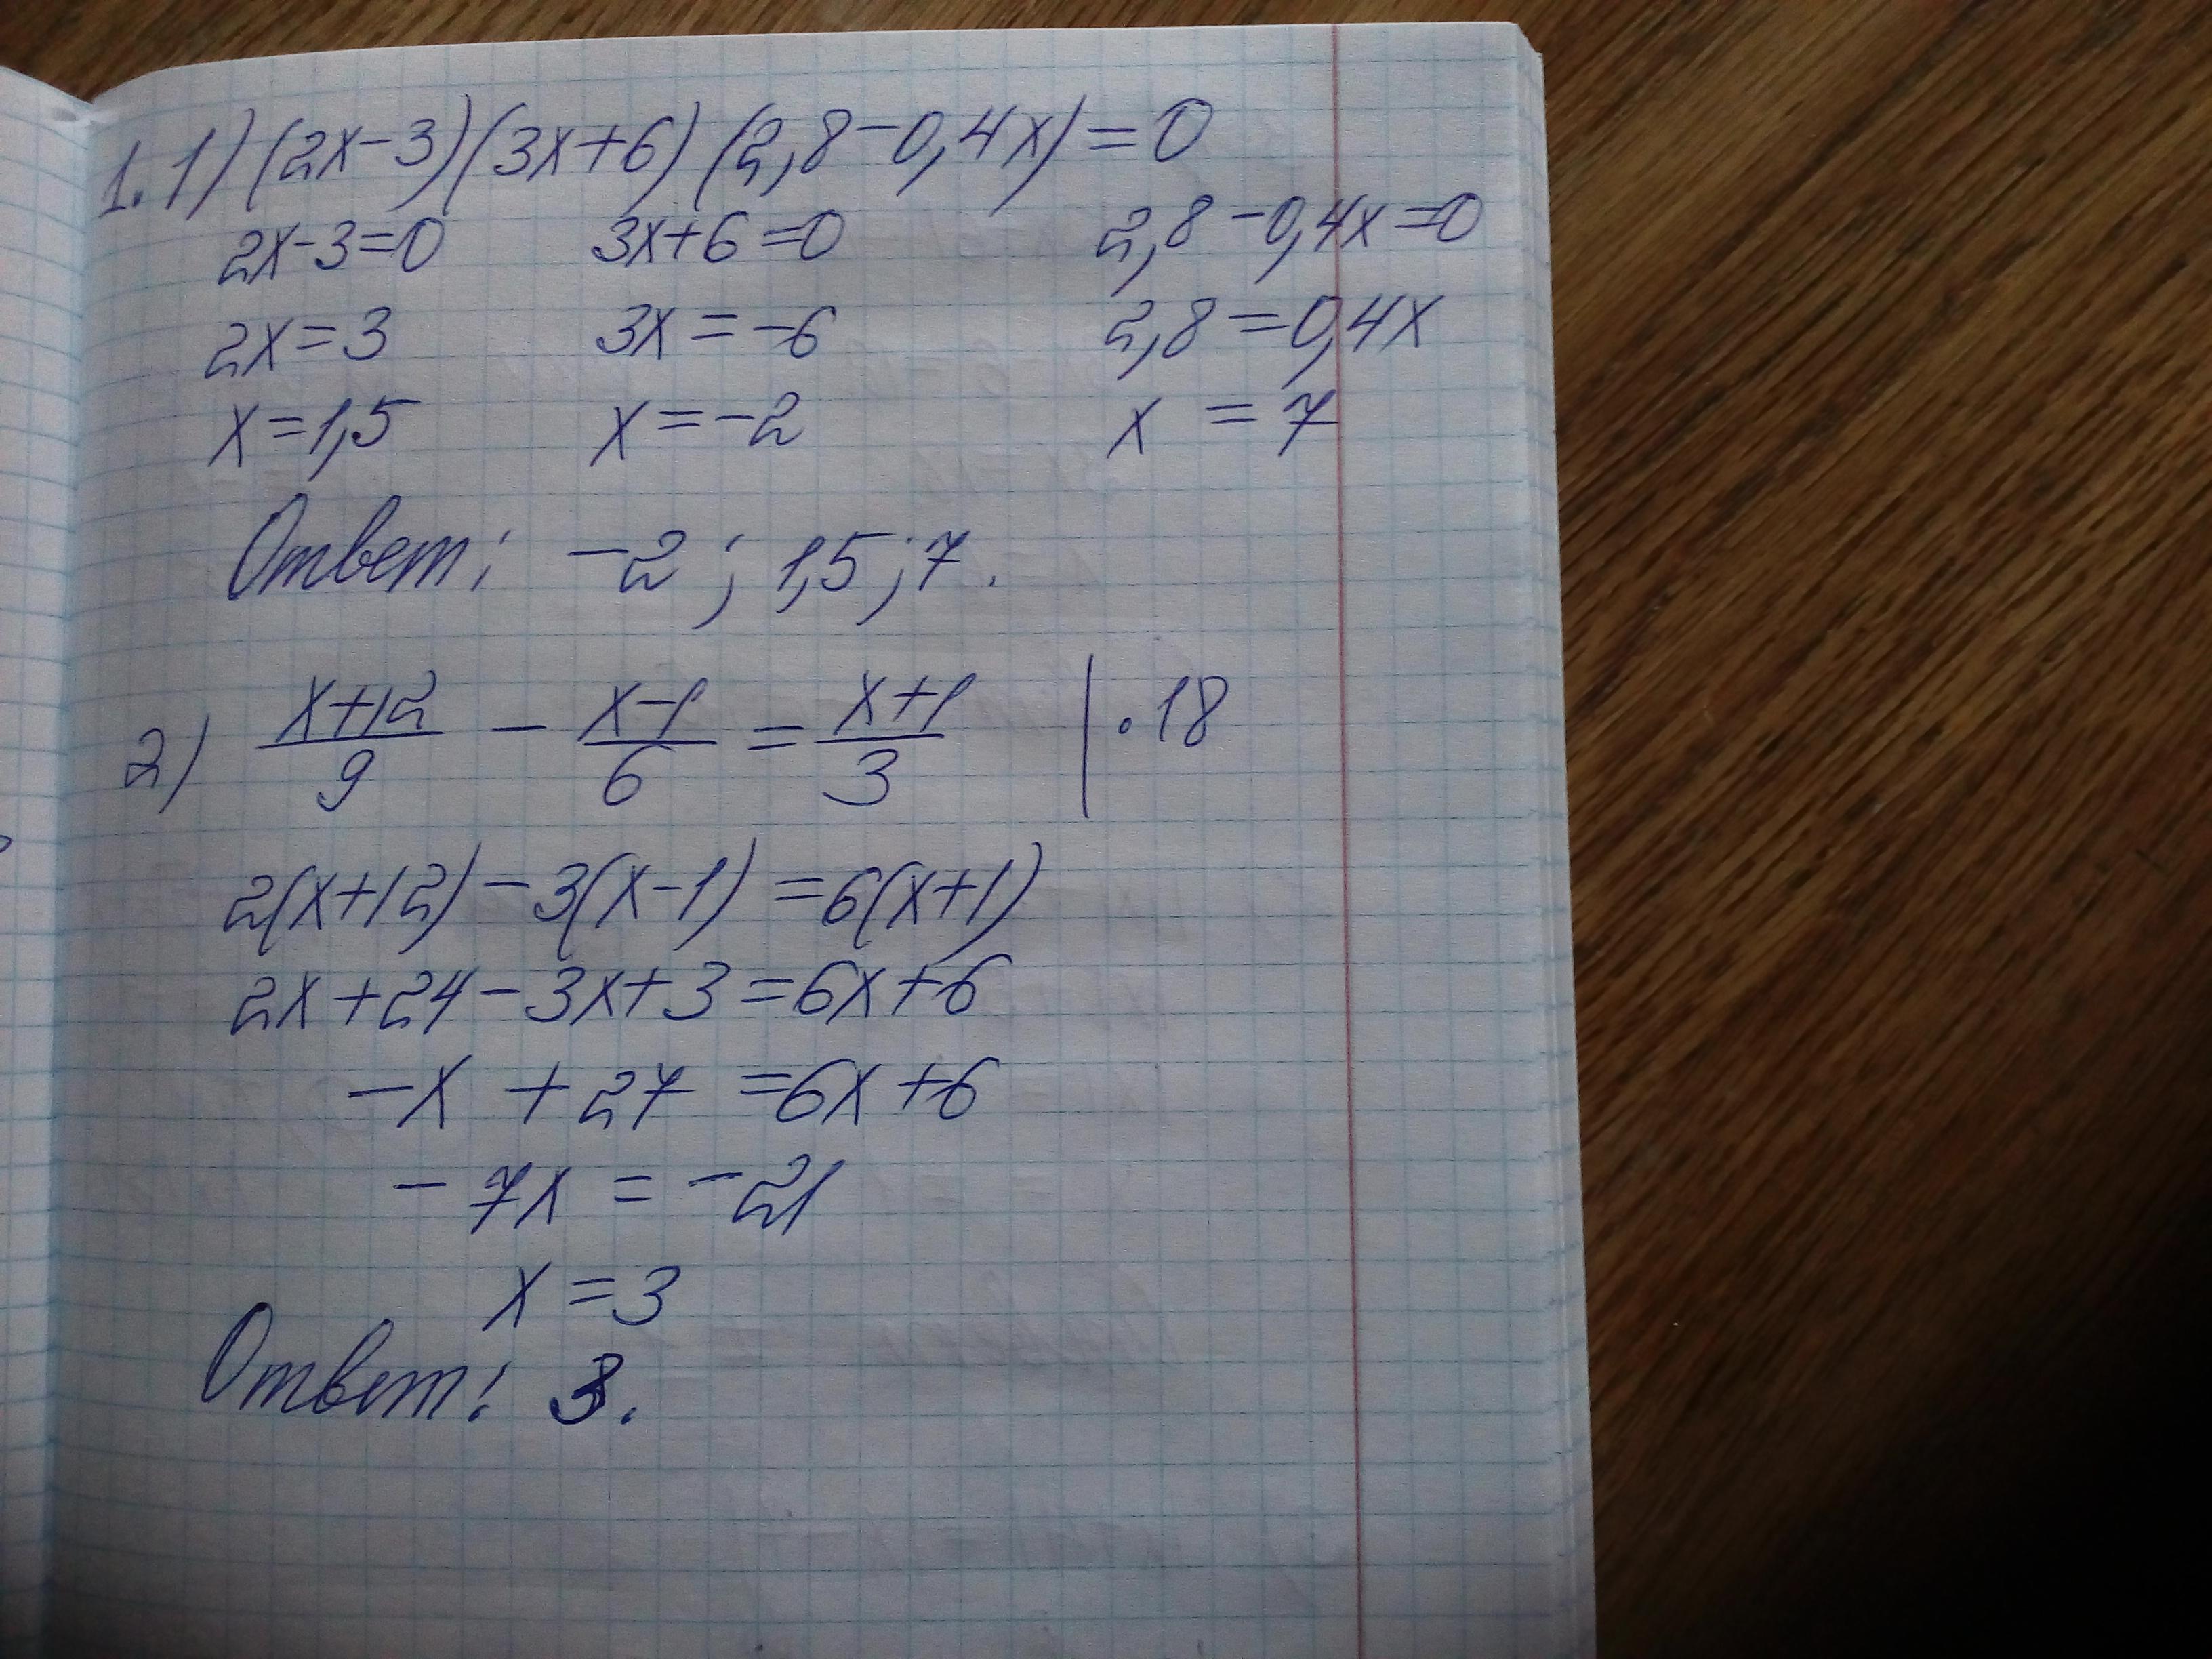 1. 1) (2x-3)(3x+6)(2,8-0,4x)=0
2x-3=0 3x+6=0 2,8-0,4x=0
2x=3 3x=-6 2,8=0,4x
x=1,5 x=-2 x=7
Ответ: -2; 1,5; 7.
2) (x+12)/9 - (x-1)/6 = (x+1)/3 | ·18
2(x+12)-3(x-1)=6(x+1)
2x+24-3x+3=6x+6
-x+27=6x+6
-7x=-21
x=3
Ответ: 3.